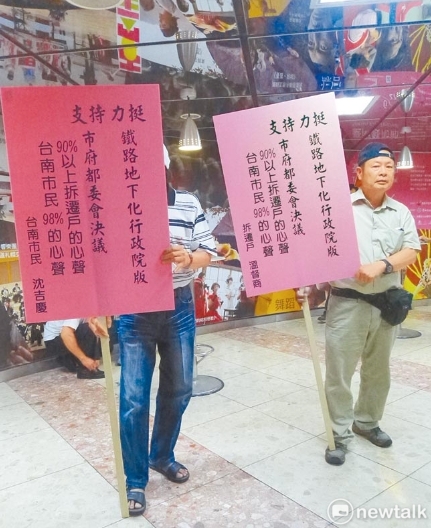 支持力挺
鐵路地下化行政院版
市府都委會決議
90%以上拆遷戶的心聲
台南市民98%的心聲
台南市民 沈吉慶
支持力挺
鐵路地下化行政院版
市府都委會決議
90%以上拆遷戶的心聲
台南市民98%的心聲
拆遷戶 溫督商
newtalk